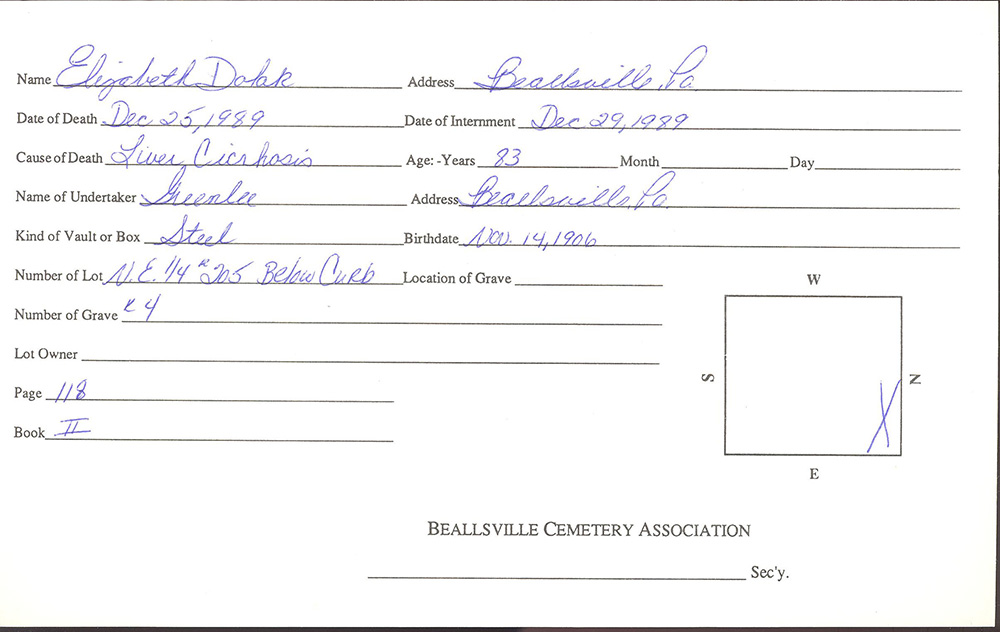 Name Elizabeth Dolak Address Beallsville, Pa.
Date of Death Dec 25, 1989 Date of Internment Dec 29, 1989
Cause of Death Liver Cicrhosis Age: -Years 83 Month Day
Name of Undertaker Greenlee Address Beallsville, Pa.
Kind of Vault or Box Steel Birthdate Nov. 14, 1906
Number of Lot N.E. 1/4 # 205 Below Curb Location of Grave
Number of Grave # 4
Lot Owner
Page 118
Book II
W
S N
E
BEALLSVILLE CEMETERY ASSOCIATION
Sec'y.